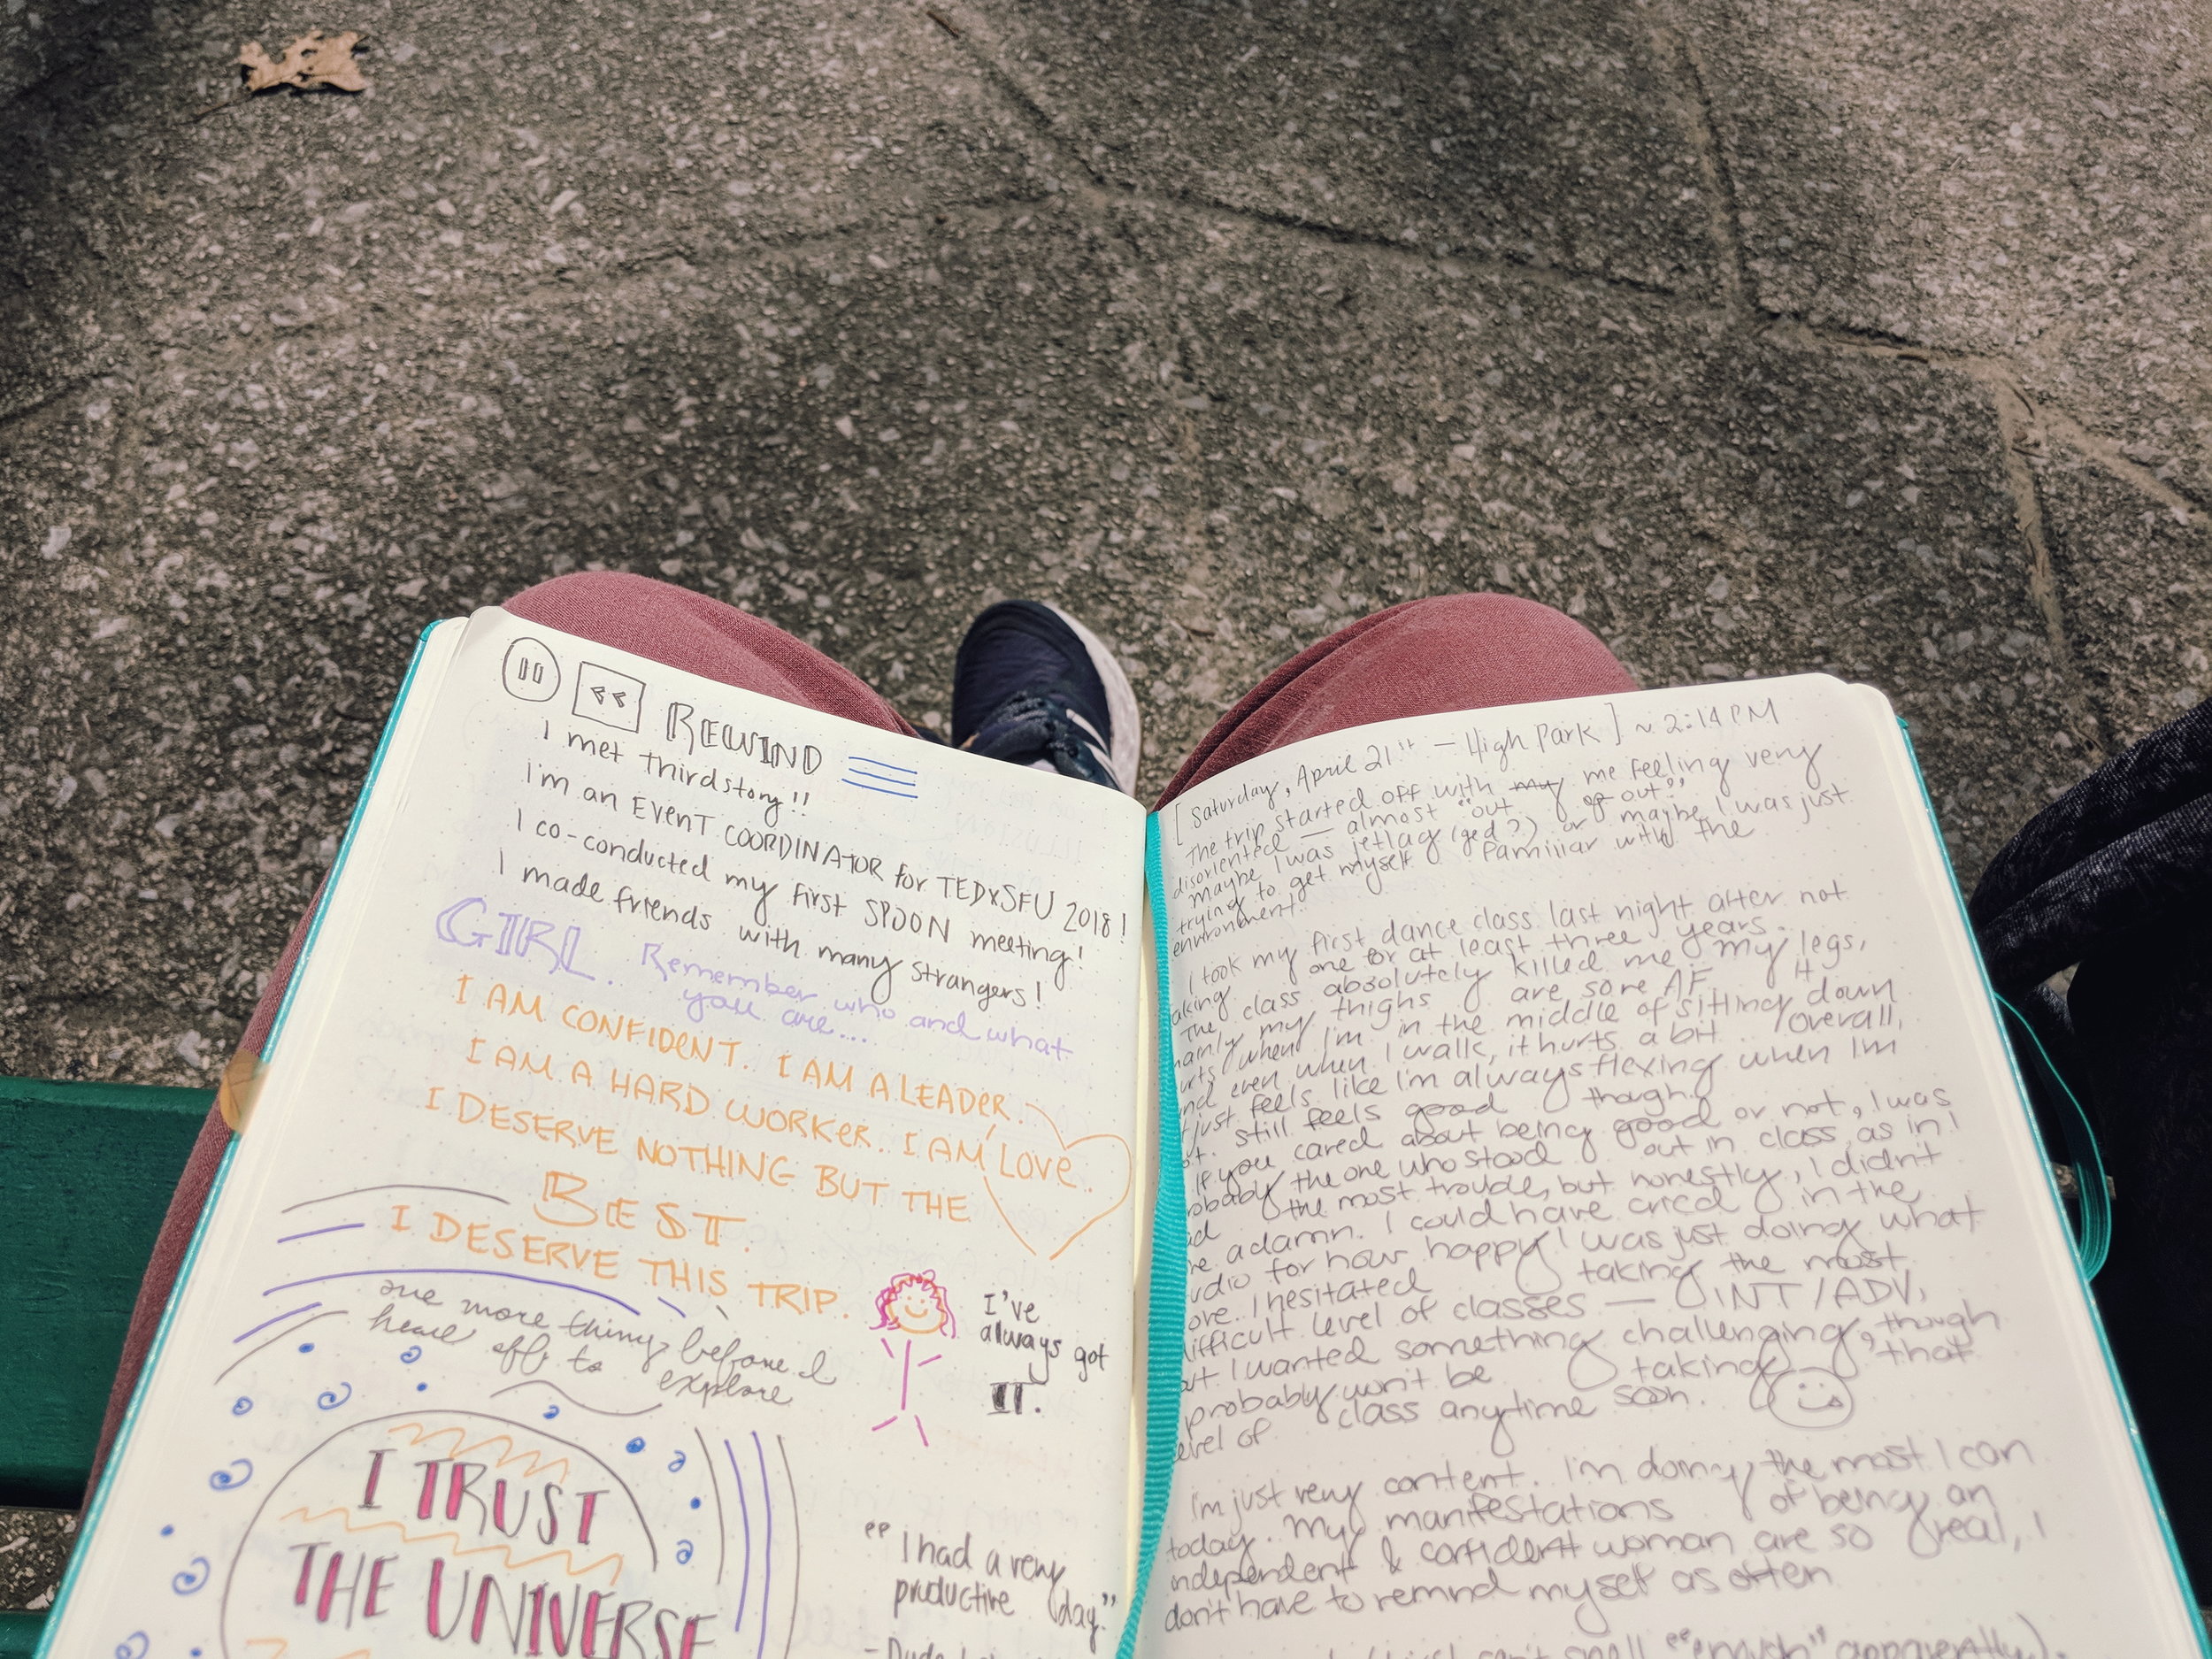 REWIND
I met thirdstory!!
I'm an EVENT COORDINATOR for TEDxSFU 2018!
I co-conducted my first SPOON meeting!
I made friends with many strangers!
GIRL. Remember who and what
you are....
I AM CONFIDENT. I AM A LEADER.
I AM A HARD WORKER. I AM LOVE.
I DESERVE NOTHING BUT THE
BEST.
I DESERVE THIS TRIP.
one more thing before I
head off to explore
I've
always got
IT.
I TRUST
THE UNIVERSE
"I had a very
productive day."
[Saturday, April 21st - High Park] ~ 2:14 PM
The trip started off with my me feeling very
disoriented — almost "out of out."
maybe I was jetlag(ged?) or maybe I was just
trying to get myself familiar with the
environment.
I took my first dance class last night after not
aking one for at least three years.
The class absolutely killed me. My legs,
mainly my thighs are sore AF. It
urts when I'm in the middle of sitting down
nd even when I walk, it hurts a bit. Overall,
t just feels like I'm always flexing when I'm
ot. Still feels good though.
If you cared about being good or not, I was
obably the one who stood out in class, as in I
ad the most trouble, but honestly, I didn't
ve a damn. I could have cried in the
udio for how happy I was just doing what
ove. I hesitated taking the most
ifficult level of classes — INT/ADV,
ut I wanted something challenging, though
probably won't be taking that
evel of class anytime soon.
I'm just very content. I'm doing the most I can
today. My manifestations of being an
independent & confident woman are so real, I
don't have to remind myself as often
can't spell "enough" apparently).